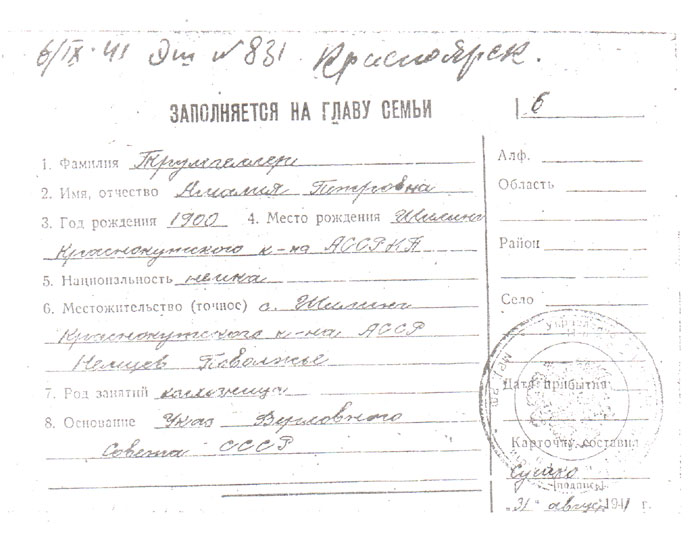 6/IX-41 Эш №831. Красноярск.
ЗАПОЛНЯЕТСЯ НА ГЛАВУ СЕМЬИ
6
1. Фамилия
2. Имя, отчество Амалия Петровна
3. Год рождения 1900 4. Место рождения Шилинг
Краснокутского к-на АССРНП
5. Национальность немка
6. Местожительство (точное) с. Шилинг
Краснокутского к-на АССР
Немцев Поволжье
7. Род занятий колхозница
8. Основание Указ Верховного
Совета СССР
Алф.
Область
Район
Село
Дата прибытия
Карточку составил
(подпись)
"31" август 1941 г.